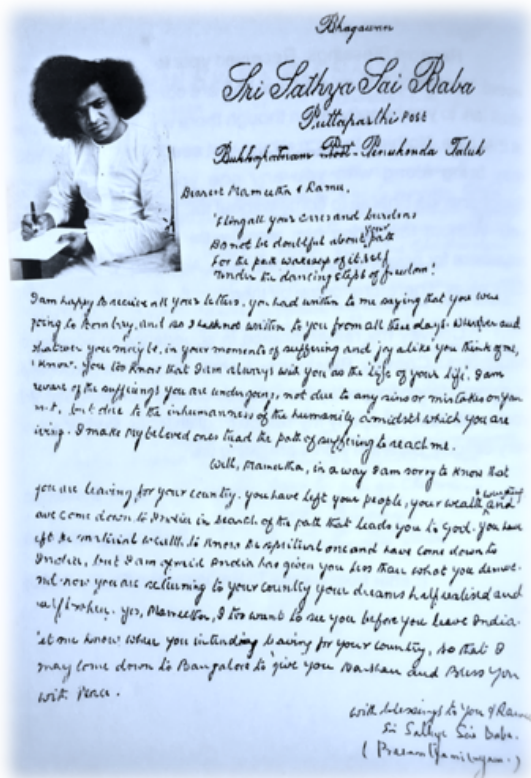 Bhagawan
Sri Sathya Sai Baba
Puttaparthi Post
Bukkapatnam Post - Penukonda Taluk
Dearest Mameetha & Ramu.
'Fling all your cares and burdens
Do not be doubtful about your path
For the path wakes up of itself
Under the dancing steps of freedom!
I am happy to receive all your letters. you had written to me saying that you were
going to Bombay, and so I had not written to you from all these days. Wherever and
whatever you may be, in your moments of suffering and joy alike you think of me,
I know. you too know that I am always with you as the 'life of your life'. I am
aware of the sufferings you are undergoing, not due to any sins or mistakes on your
but due to the inhumanness of the humanity amidst which you are
iving. I make My beloved ones tread the path of suffering to reach me.
Well, Mameetha, in a way I am sorry to know that
you are leaving for your country. you have left your people, your wealth and
ave come down to India in search of the path that leads you to God. you have
eft the material wealth to know the spiritual one and have come down to
India, but I am afraid India has given you less than what you
nd now you are returning to your country your dreams half realised and
alf broken. yes, Mameetha, I too want to see you before you leave India.
et me know when you intending leaving for your country, so that I
may come down to Bangalore to give you Darshan and Bless you
with Peace.
with blessings to you & Ramu
Sri Sathya Sai Baba.